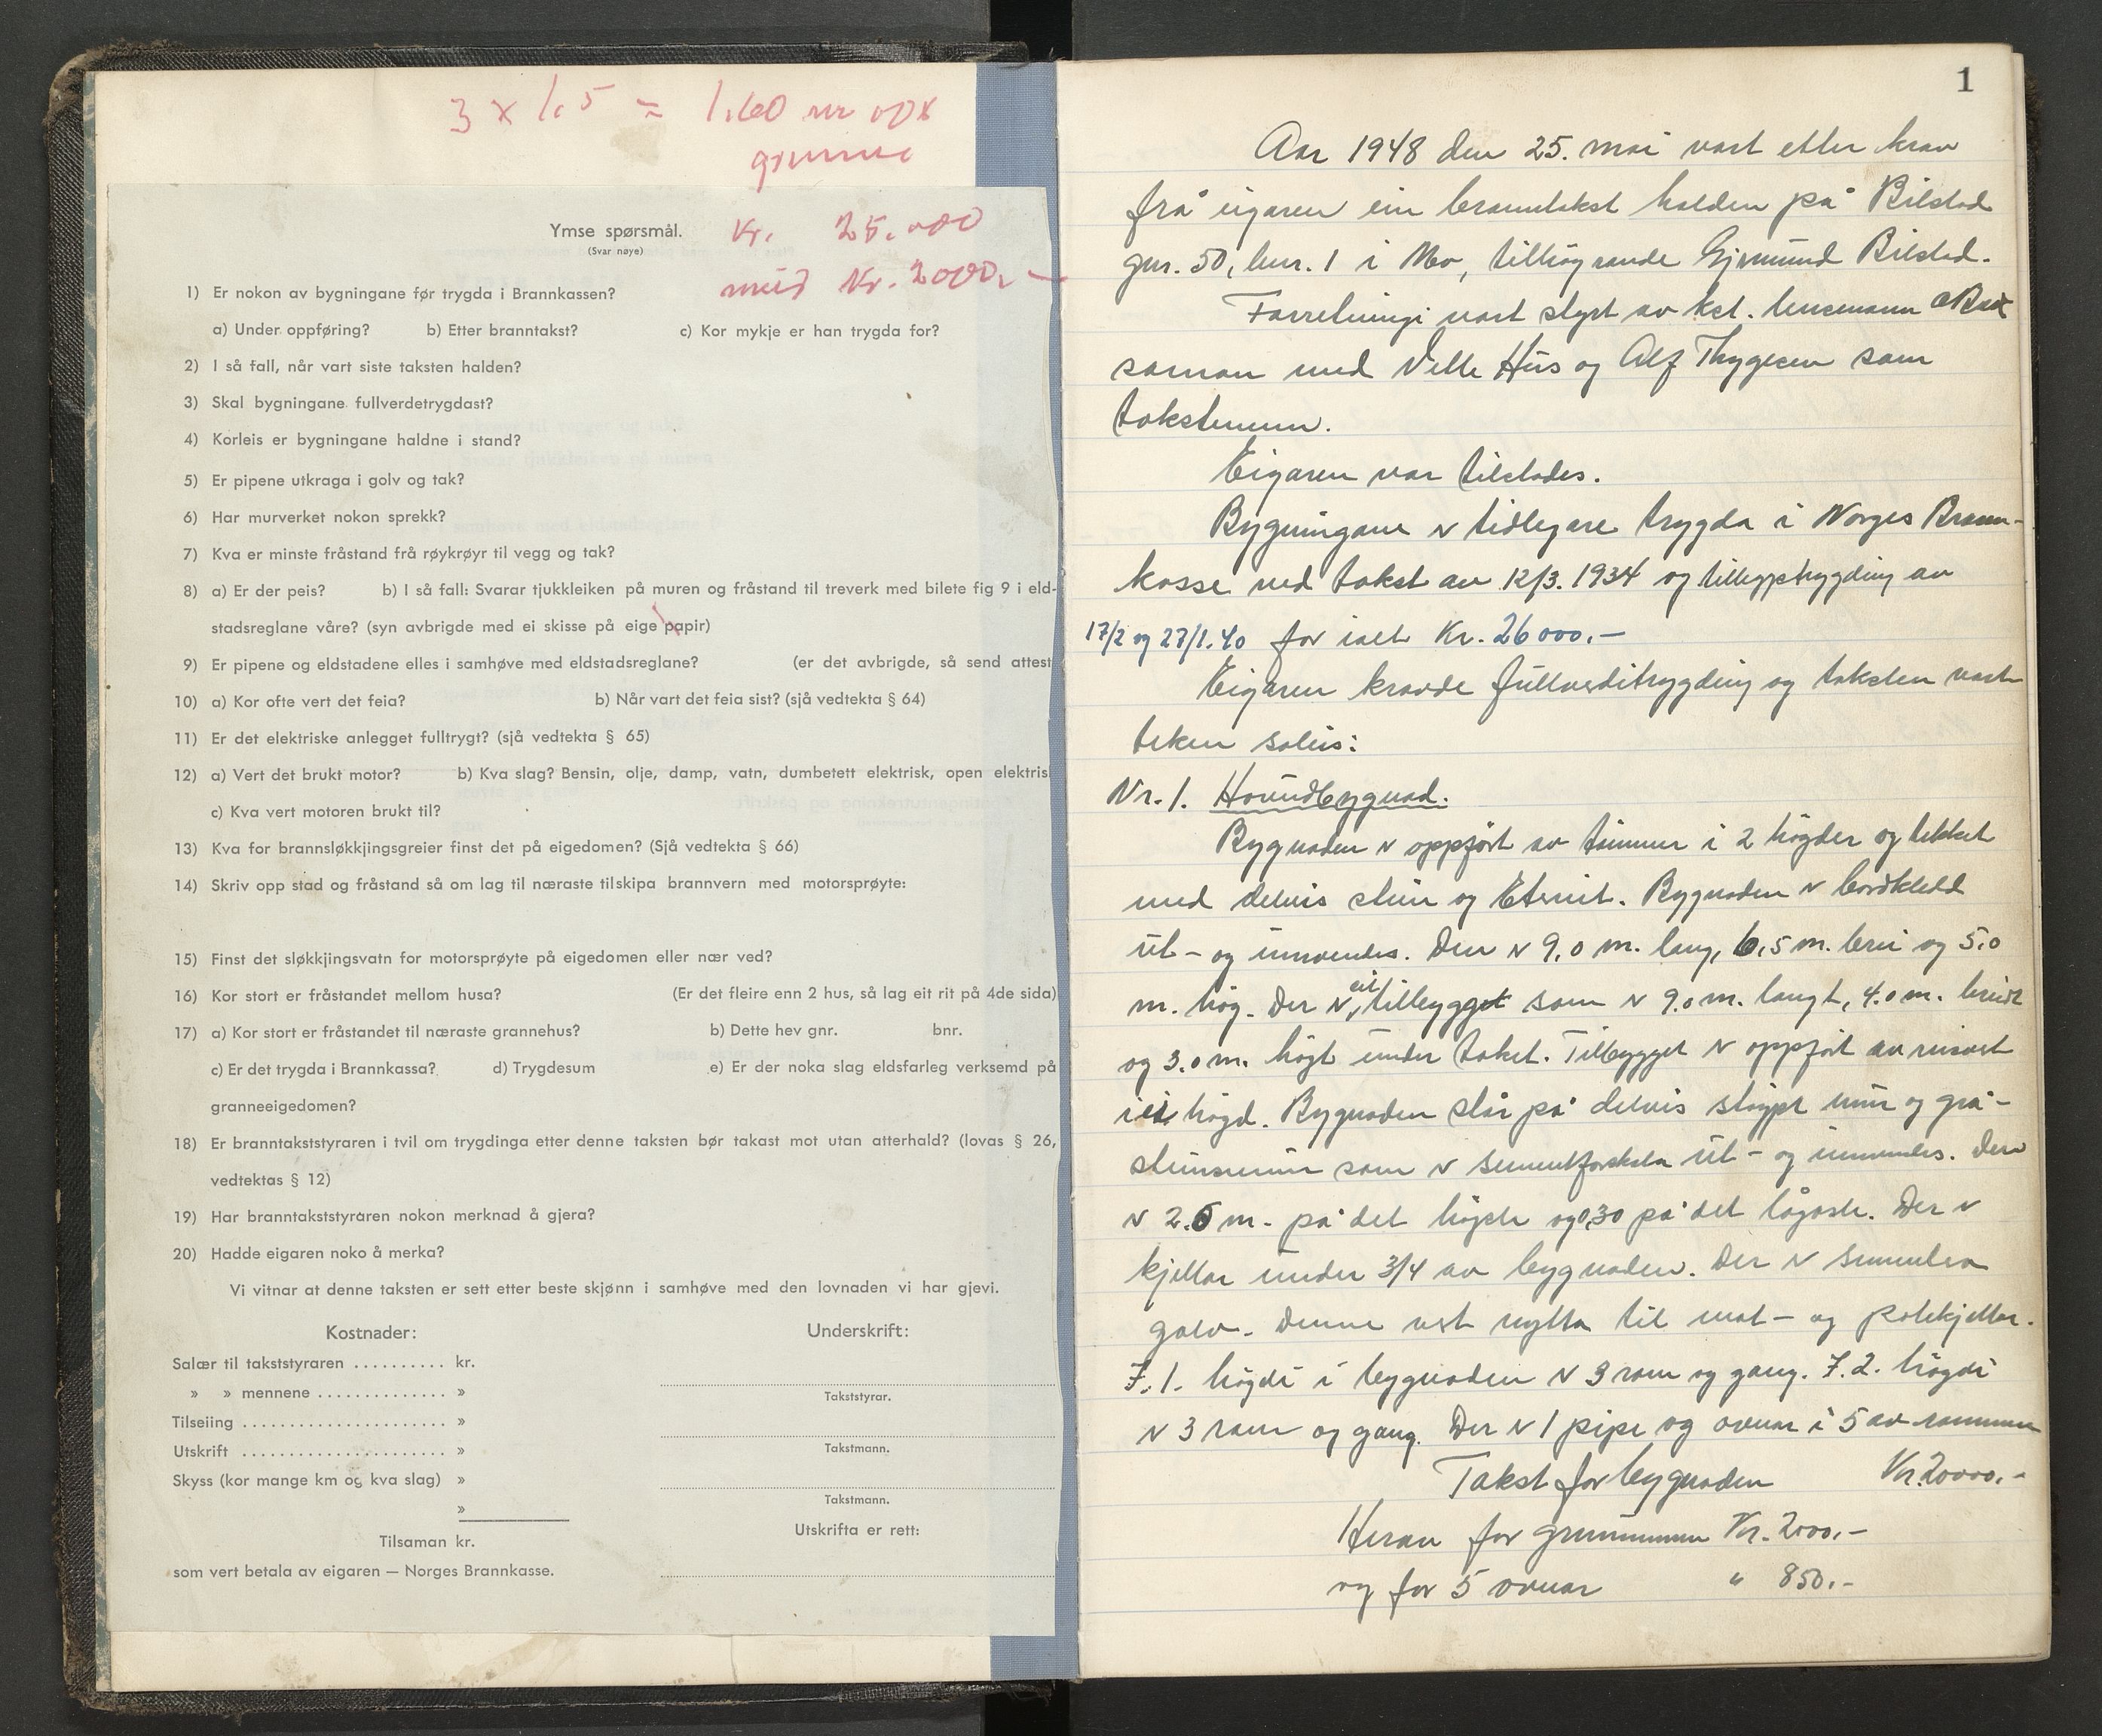 3 x 1.5 = 1.60
Kr. 25.000
Kr. 2000.-
Ymse spørsmål.
(Svar nøye)
1) Er nokon av bygningane før trygda i Brannkassen?
a) Under oppføring? b) Etter branntakst? c) Kor mykje er han trygda for?
2) I så fall, når vart siste taksten halden?
3) Skal bygningane fullverdetrygdast?
4) Korleis er bygningane haldne i stand?
5) Er pipene utkraga i golv og tak?
6) Har murverket nokon sprekk?
7) Kva er minste fråstand frå røykrøyr til vegg og tak?
8) a) Er der peis? b) I så fall: Svarar tjukkleiken på muren og fråstand til treverk med bilete fig 9 i eld-
stadsreglane våre? (syn avbrigde med ei skisse på eige papir)
9) Er pipene og eldstadene elles i samhøve med eldstadsreglane? (er det avbrigde, så send attest
10) a) Kor ofte vert det feia? b) Når vart det feia sist? (sjå vedtekta § 64)
11) Er det elektriske anlegget fulltrygt? (sjå vedtekta § 65)
12) a) Vert det brukt motor? b) Kva slag? Bensin, olje, damp, vatn, dumbetett elektrisk, open elektrisk
c) Kva vert motoren brukt til?
13) Kva for brannsløkkjingsgreier finst det på eigedomen? (Sjå vedtekta § 66)
14) Skriv opp stad og fråstand så om lag til næraste tilskipa brannvern med motorsprøyte:
15) Finst det sløkkjingsvatn for motorsprøyte på eigedomen eller nær ved?
16) Kor stort er fråstandet mellom husa? (Er det fleire enn 2 hus, så lag eit rit på 4de sida)
17) a) Kor stort er fråstandet til næraste grannehus? b) Dette hev gnr. bnr.
c) Er det trygda i Brannkassa? d) Trygdesum e) Er der noka slag eldsfarleg verksemd på
granneeigedomen?
18) Er branntakststyraren i tvil om trygdinga etter denne taksten bør takast mot utan atterhald? (lovas § 26,
vedtektas § 12)
19) Har branntakststyraren nokon merknad å gjera?
20) Hadde eigaren noko å merka?
Vi vitnar at denne taksten er sett etter beste skjønn i samhøve med den lovnaden vi har gjevi.
Kostnader: Underskrift:
Salær til takststyraren .......... kr.
» » mennene .............. »
Takststyrar.
Tilseiing ...................... »
Utskrift ...................... »
Takstmann.
Skyss (kor mange km og kva slag) »
»
Takstmann.
Utskrifta er rett:
Tilsaman kr.
som vert betala av eigaren — Norges Brannkasse.
1
Aar 1948 den 25. mai vart etter krav
frå eigaren ein branntakst halden på Bilstad
gnr. 50, bnr. 1 i Mo, tilhøyrande Gjermund Bilstad.
Forretningi vart styrt av kst. lensmann
saman med Velle Hus og Alf Thygesen som
takstmenn.
Eigaren var tilstades.
Bygningane er tidlegare trygda i Norges Brann-
kasse ved takst av 12/3. 1934 og tilleggstrygding av
17/2 og 27/1.40 for ialt Kr. 26000.-
Eigaren kravde fullverditrygding og taksten vart
teken soleis:
Nr. 1. Hovudbygnad.
Bygnaden er oppført av tømmer i 2 høgder og tekket
med delvis stein og Eternit. Bygnaden er bordkledd
ut- og innvendes. Den er 9,0 m. lang, 6,5 m. brei og 5,0
m. høg. Der er eit tilbygget som er 9.0 m. langt, 4.0 m. breidt
og 3.0 m. høgt under taket. Tilbygget er oppført av reisverk
i ei høgd. Bygnaden står på delvis støypt mur og grå-
steinsmur som er sementpuska ut- og innvendes. Den
er 2.5 m. på det høgste og 0,30 på det lågaste. Der er
kjellar under 3/4 av bygnaden. Der er sementera
golv. Denne vert nytta til mat- og potekjellar.
I. 1. høgdi i bygnaden er 3 rom og gang. I. 2. høgdi
er 3 rom og gang. Der er 1 pipe og ovnar i 5 av rommene
Takst for bygnaden Kr. 20000.-
Herav for grunnmuren Kr. 2000.-
og for 5 ovnar " 850.-